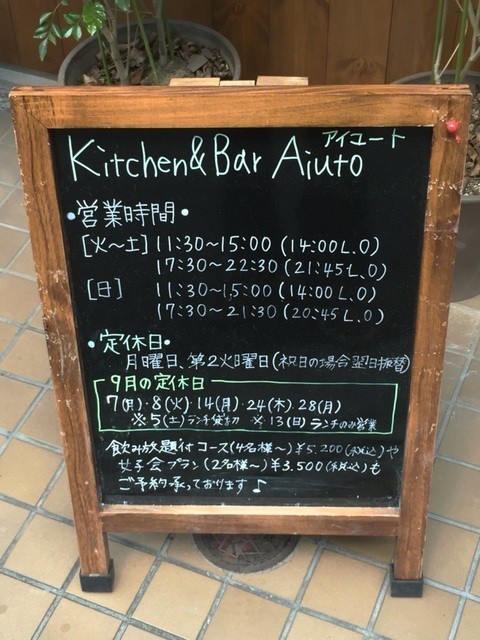 アイユート
Kitchen&Bar Aiuto
•営業時間•
[火〜土] 11:30〜15:00 (14:00 L.O)
17:30〜22:30 (21:45 L.O)
[日] 11:30〜15:00 (14:00 L.O)
17:30〜21:30 (20:45 L.O)
•定休日•
月曜日、第2火曜日(祝日の場合翌日振替)
9月の定休日
7(月)・8(火)・14(月)・24(木)・28(月)
※5(土)ランチ貸切 ※13(日)ランチのみ営業
飲み放題付コース(4名様〜)¥5.200(税込)や
女子会プラン(2名様〜)¥3.500(税込)も
ご予約承っております♪